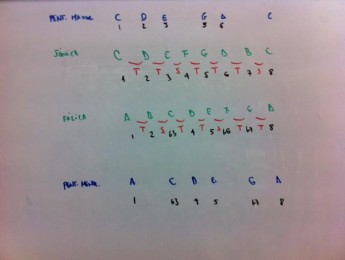 PENT. MAYOR C D E G A C
1 2 3 5 6
JÓNICA C D E F G A B C
T T S T T T S
1 2 3 4 5 6 7 8
EÓLICA A B C D E F G A
T S T T S T T
1 2 b3 4 5 b6 b7 8
PENT. MENOR A C D E G A
1 b3 4 5 b7 8